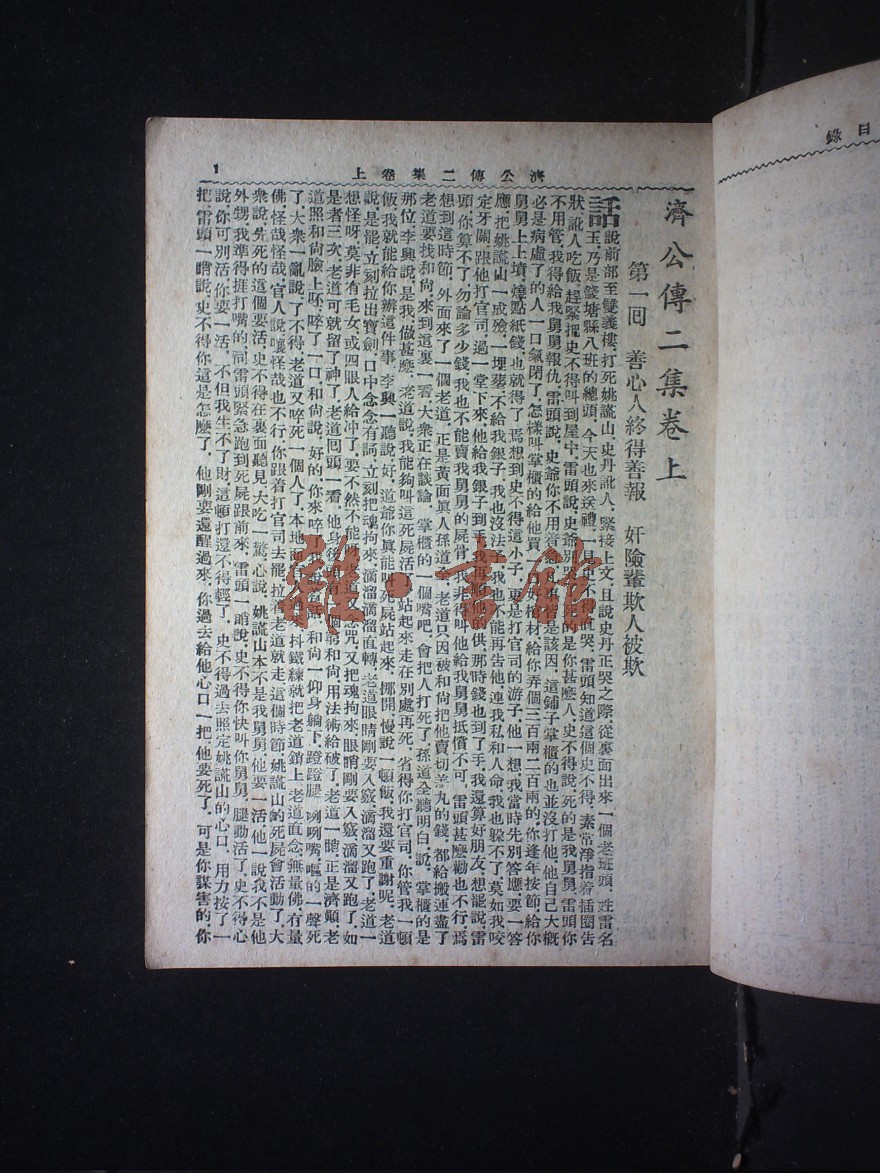 目錄
濟公傳二集卷上
1
濟公傳二集卷上
第一回　善心人終得善報　奸險輩欺人被欺
話說前部至雙義樓，打死姚謊山，史丹訛人，緊接上文，且說史丹正哭之際，從裏面出來一個老班頭，姓雷名
玉，乃是錢塘縣八班的總頭，今天也來送禮，一見史不得直哭，雷頭知道這個史不得，素常淨指着插圈告
狀，訛人吃飯，趕緊把史不得叫到屋中，雷頭說，史爺別哭，死的是你甚麽人，史不得說，死的是我舅舅，雷頭你
不用管，我得給我舅舅報仇，雷頭說，史爺你不用着急，這事皆是該因，這鋪子掌櫃的也並沒打他，他自己大槪
必是病虛了的人，一口氣閉了，怎樣叫掌櫃的給他買口好棺材，給你弄個三百兩二百兩的，你逢年按節，給你
舅舅上上墳，燒點紙錢，也就得了，焉想到史不得這小子，更是打官司的游子，他一想，我當時先別答應，要一答
應，把姚謊山一成殮，一埋葬，不給我銀子，我也沒法子，我也不能再告他，連我私和人命，我也躱不了，莫如我咬
定牙關，跟他打官司，過一堂下來，他給我銀子到手，我再改他的供，那時錢也到了手，我還算好朋友，想罷說，雷
頭你算不了，勿論多少錢，我也不能賣我舅舅的屍骨，我非得叫他給我舅舅抵償不可，雷頭甚麽勸也不行，焉
想到這時節，外面來了一個老道，正是黃面眞人孫道全，老道只因被和尙把他賣切糕丸的錢，都給搬運盡了，
老道要找和尙，來到這裏一看，大衆正在談論，掌櫃的一個嘴吧，會把人打死了，孫道全聽明白，說，掌櫃的是
那位，李興說，是我，做甚麽，老道說，我能夠叫這死屍活了，站起來走在別處再死，省得你打官司，你管我一頓
飯，我就能給你辦這件事，李興一聽說，好，道爺你眞能叫死屍站起來，挪開，慢說一頓飯，我還要重謝呢，老道
說是罷，立刻拉出寶劍，口中念念有詞，立刻把魂拘來，滴溜滴溜直轉，老道眼睛剛要入竅，滴溜又跑了，老道一
想怪呀，莫非有毛女，或四眼人給冲了，要不然不能呀，老道又念咒，又把魂拘來，眼睛剛要入竅，滴溜又跑了，如
是者三次，老道可就留了神了，老道囘頭一看，他身後站着一個窮和尙，用法術給破了，老道一瞧，正是濟顛，老
道照和尙臉上呸，啐了一口，和尙說，好的，你來啐了我，說話，和尙一仰身躺下，蹬蹬腿，咧咧嘴，嘔的一聲死
了，大衆一亂說，了不得，老道又啐死一個人了，本地面官人過來，抖鐵練就把老道鎖上，老道直念無量佛，有量
佛，怪哉怪哉，官人說，嚷怪哉也不行，你跟着打官司去罷，拉着老道就走，這個時節，姚謊山的死屍會活動了，大
衆說，先死的這個要活，史不得在裏面聽見，大吃一驚，心說，姚謊山本不是我舅舅，他要一活，他一說我不是他
外甥，我準得捱打嘴的，同雷頭緊急跑到死屍跟前來，雷頭一瞧說，史不得你快叫你舅舅，腿動活了，史不得心
說，你可別活，你要一活，不但我生不了財，這頓打還不得輕了，史不得挪過去，照定姚謊山的心口，用力按了一
把，雷頭一瞧說，史不得你這是怎麽了，他剛要還醒過來，你過去給他心口一把，他要死了，可是你謀害的，你
雜·書館